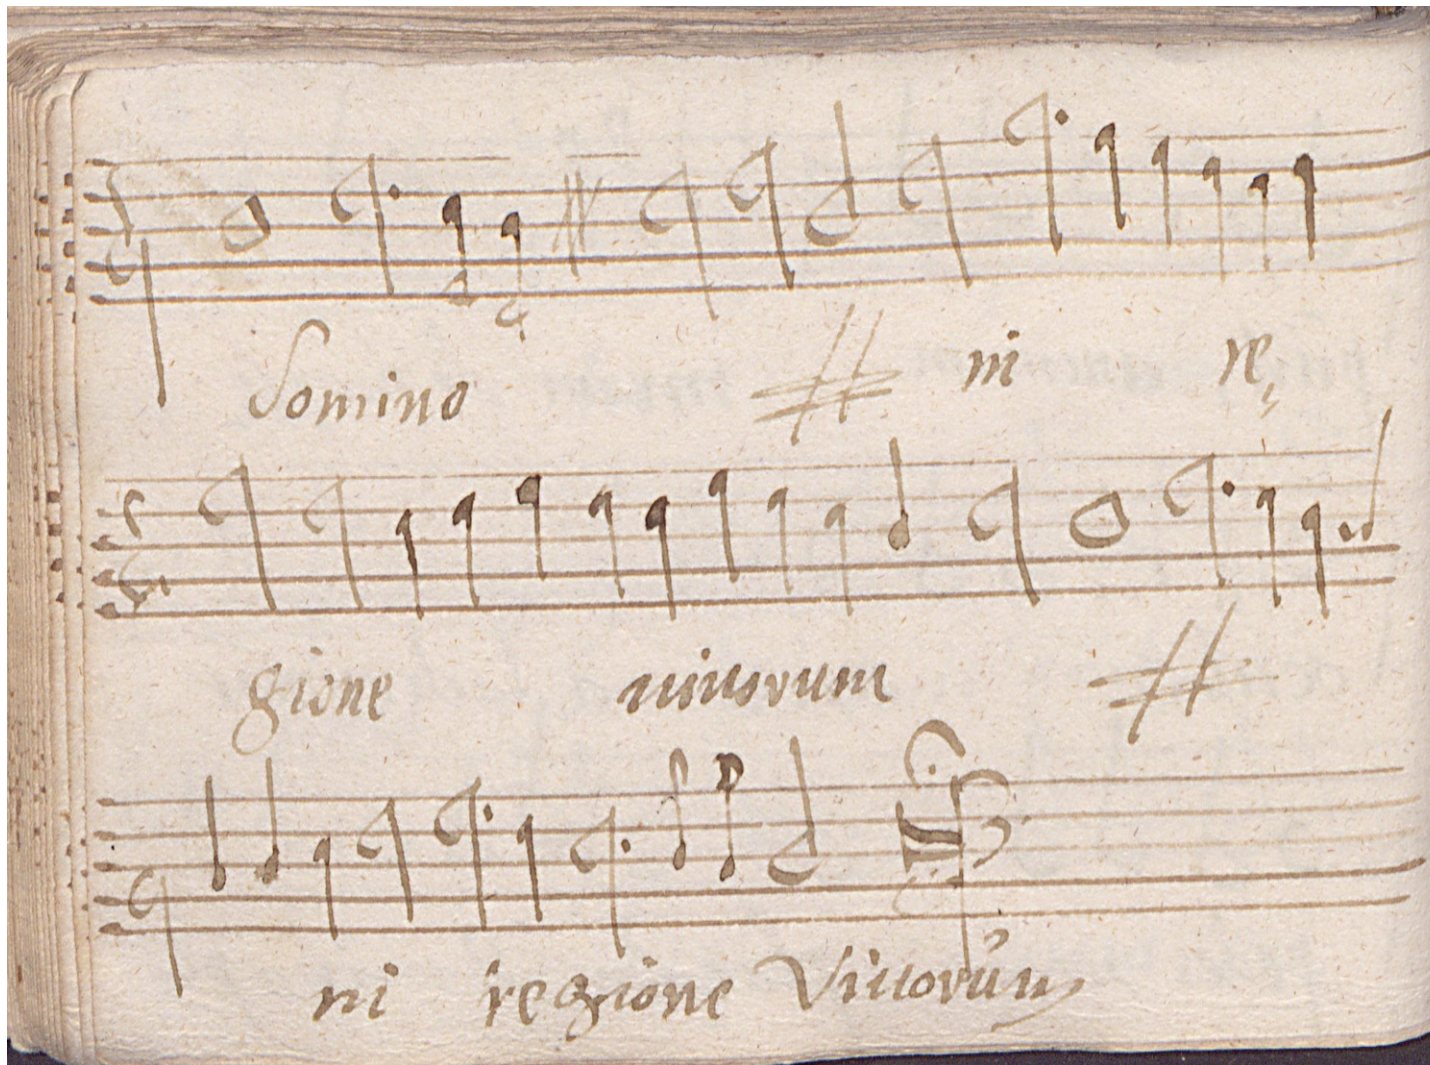 domino ni re
gione uiuorum
ni regione Viuorum